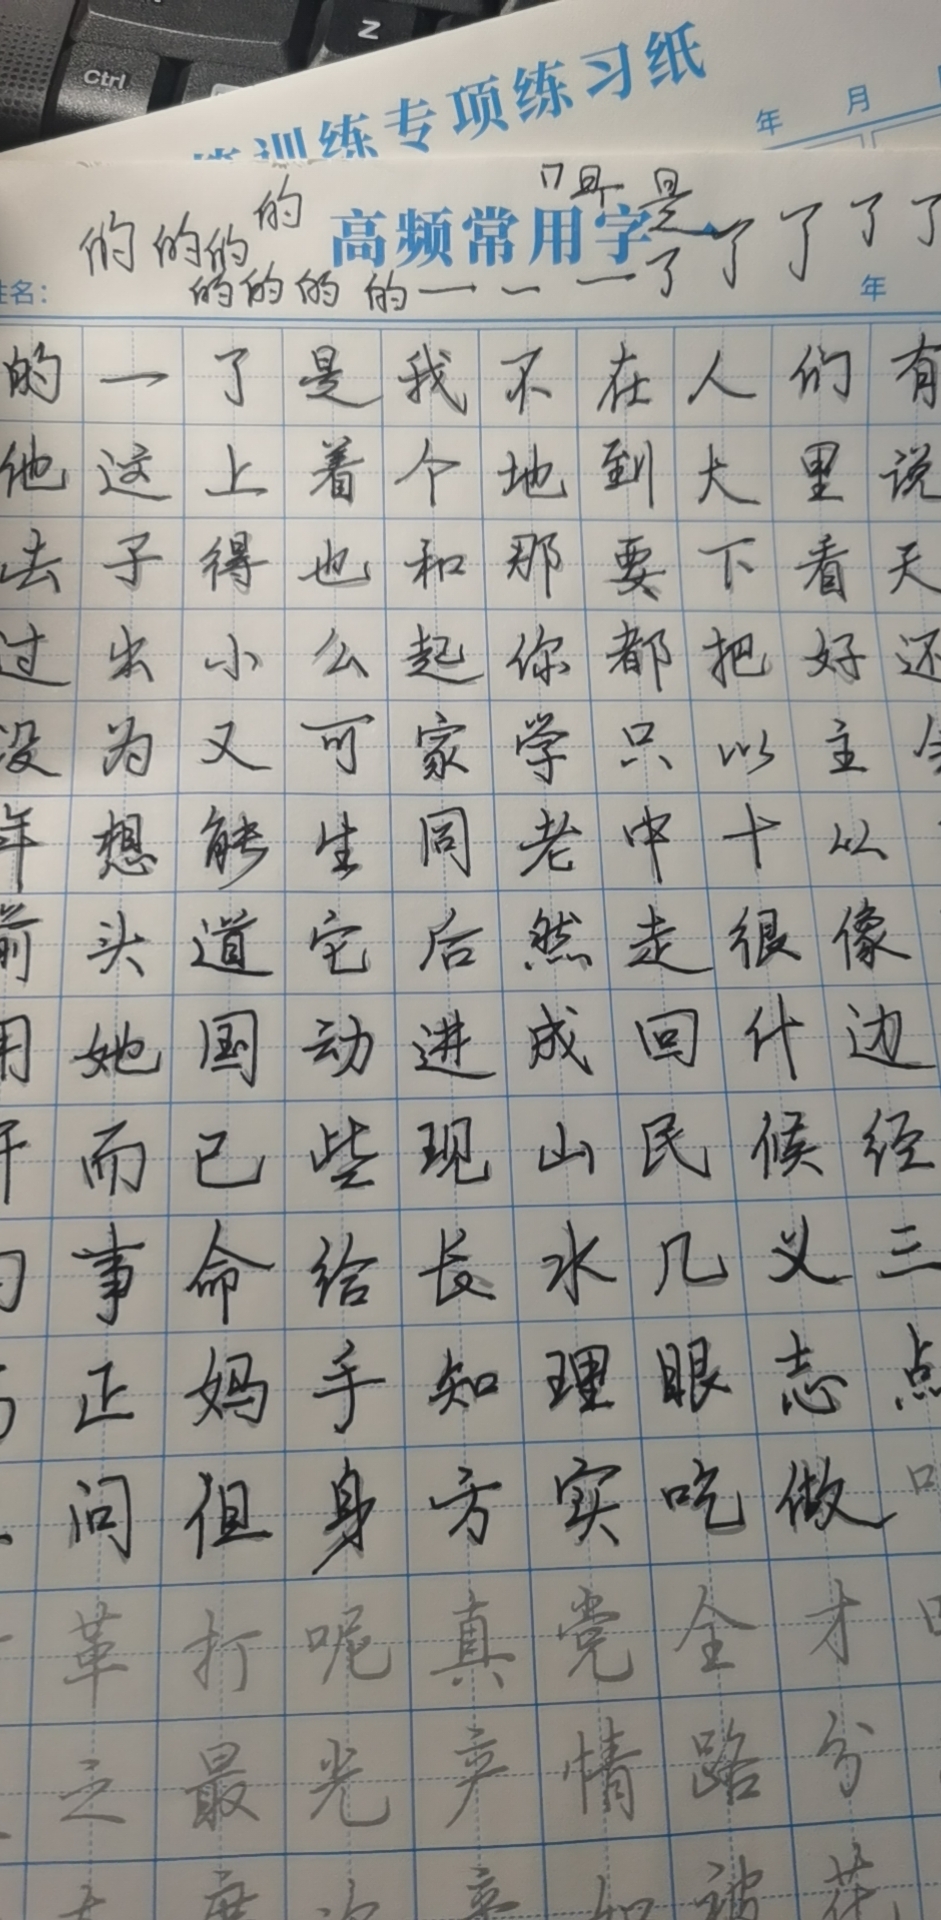 Z
Ctrl
训练专项练习纸
年 月
的 的 的 的 是
高频常用字一 了 了 了 了
的 的 的 的 一 一 一 了
姓名: 年
的 一 了 是 我 不 在 人 们 有
他 这 上 着 个 地 到 大 里 说
去 子 得 也 和 那 要 下 看 天
过 出 小 么 起 你 都 把 好 还
没 为 又 可 家 学 只 以 主 会
年 想 能 生 同 老 中 十 从
前 头 道 它 后 然 走 很 像
用 她 国 动 进 成 回 什 边
开 而 已 些 现 山 民 候 经
事 命 给 长 水 几 义 三
正 妈 手 知 理 眼 志 点
问 但 身 方 实 吃 做
革 打 呢 真 党 全 才
之 最 光 产 情 路 分
被 花